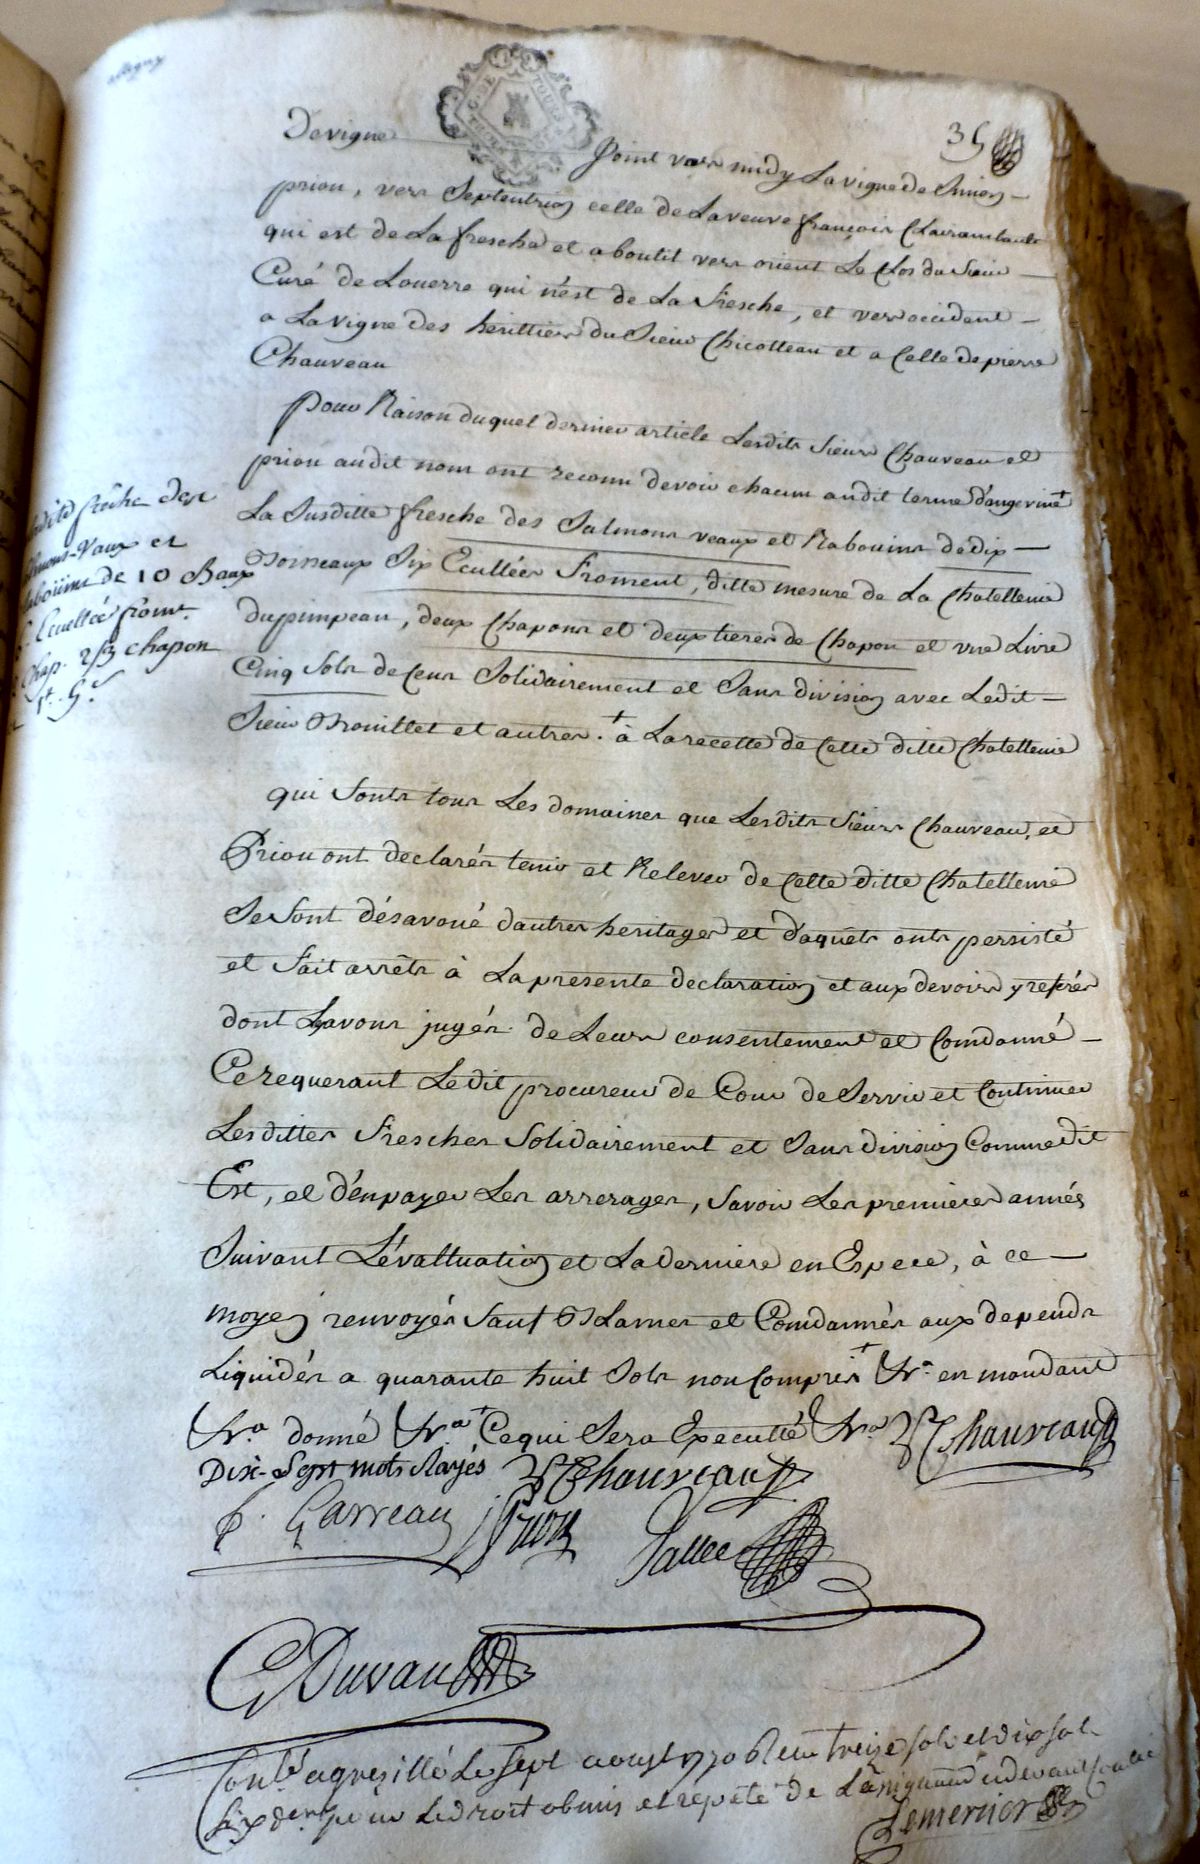 35
De vigne
Joint vers midy La vigne de Simon
priou, vers Septentrion celle de La veuve françois Clairambault
qui est de La fresche et aboutit vers orient Le Clos du Sieur
Curé de Louerre qui n'est de La fresche, et vers occident
a La vigne des herittiers du Sieur Chicotteau et a Celle de pierre
Chauveau
pour Raison duquel dernier article Lesdits Sieurs Chauveau et
priou audit nom ont reconu devoir chacun audit terme d'angevine +
La Susditte fresche des Salmons veaux et Rabouins de dix
Boisseaux Six Ecullées Froment, ditte mesure de La Chatellenie
du pimpeau, deux Chapons et deux tiers de Chapon et une Livre
Cinq Sols de Cens Solidairement et Sans division avec Ledit
Sieur Trouillet et autres. + à La recette de Cette ditte Chatellenie
Ladite frêche des
Salmons-Vaux et
Rabouins de 10 Baux
6 Ecuellée from.t
Chap. 2/3 chapon
qui Sonts tous Les domaines que Lesdits Sieurs Chauveau, et
Priou ont declarés tenir et Relever de Cette ditte Chatellenie
Se Sont désavoué d'autres heritages et d'aquêts onts persisté
et fait arrêts à La presente declaration et aux devoirs y referés
dont Lavons jugés de Leurs consentement et Condamné
Ce requerant Ledit procureur de Cour de Servir et Continuer
Lesdittes Fresches Solidairement et Sans division Comme dit
Est, et d'en payer Les arrerages, Savoir Les premieres années
Suivant L'évalluation et La derniere en Espece, à ce
moyen renvoyés Sauf Blames et Condamnés aux depends
Liquidés a quarante huit Sols non Compris + en mandant
donné Ce qui Sera Executté Chauveau
Dix-Sept mots Rayés Chauveau
Garreau Priou Vallee
Duvau
Con.lé a gresillé Le Sept aoust 1770 Reçu treize Sols et dix Sols
Six den. pour Le droit obmis et repeté de
Lemercier